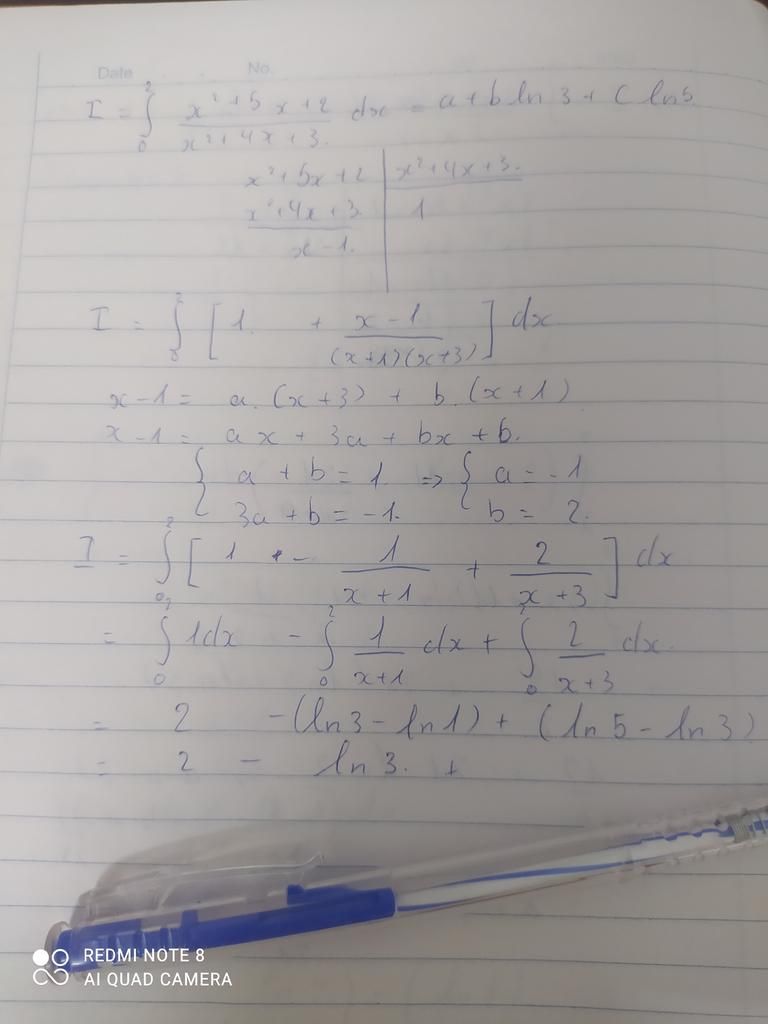 Date No.
I = ∫₀² (x² + 5x + 2)/(x² + 4x + 3) dx = a + b ln 3 + c ln 5
x² + 5x + 2 | x² + 4x + 3.
x² + 4x + 3 | 1
x - 1.
I = ∫₀² [ 1. + (x - 1)/((x+1)(x+3)) ] dx
x - 1 = a. (x + 3) + b. (x + 1)
x - 1 = ax + 3a + bx + b.
{ a + b = 1. => { a = -1
{ 3a + b = -1. { b = 2.
I = ∫₀² [ 1 - 1/(x + 1) + 2/(x + 3) ] dx
= ∫₀² 1dx - ∫₀² 1/(x+1) dx + ∫₀² 2/(x+3) dx.
= 2 - (ln 3 - ln 1) + (ln 5 - ln 3)
= 2 - ln 3. +
REDMI NOTE 8
AI QUAD CAMERA